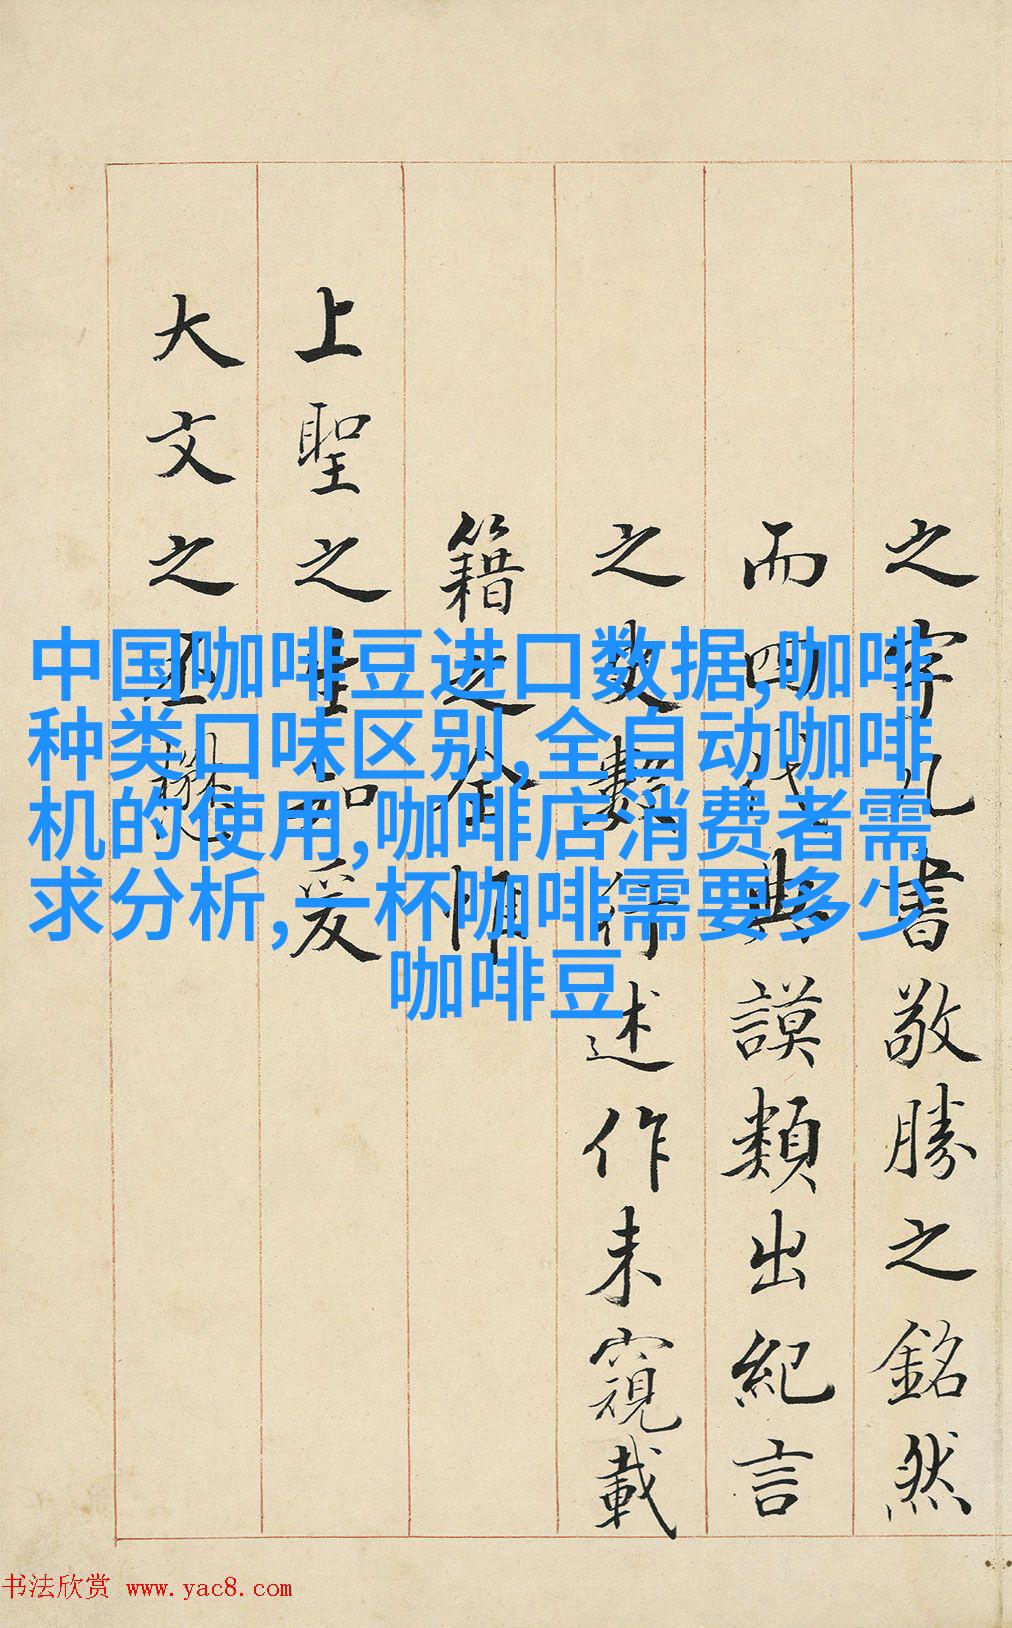 中国咖啡豆进口数据,咖啡
种类口味区别,全自动咖啡
机的使用,咖啡店消费者需
求分析,一杯咖啡需要多少
咖啡豆
之書敬勝之銘然
而四典謨類出紀言
之數行述作未窺載
籍之全惟
上聖之生知爰
大文之丕
书法欣赏 www.yac8.com